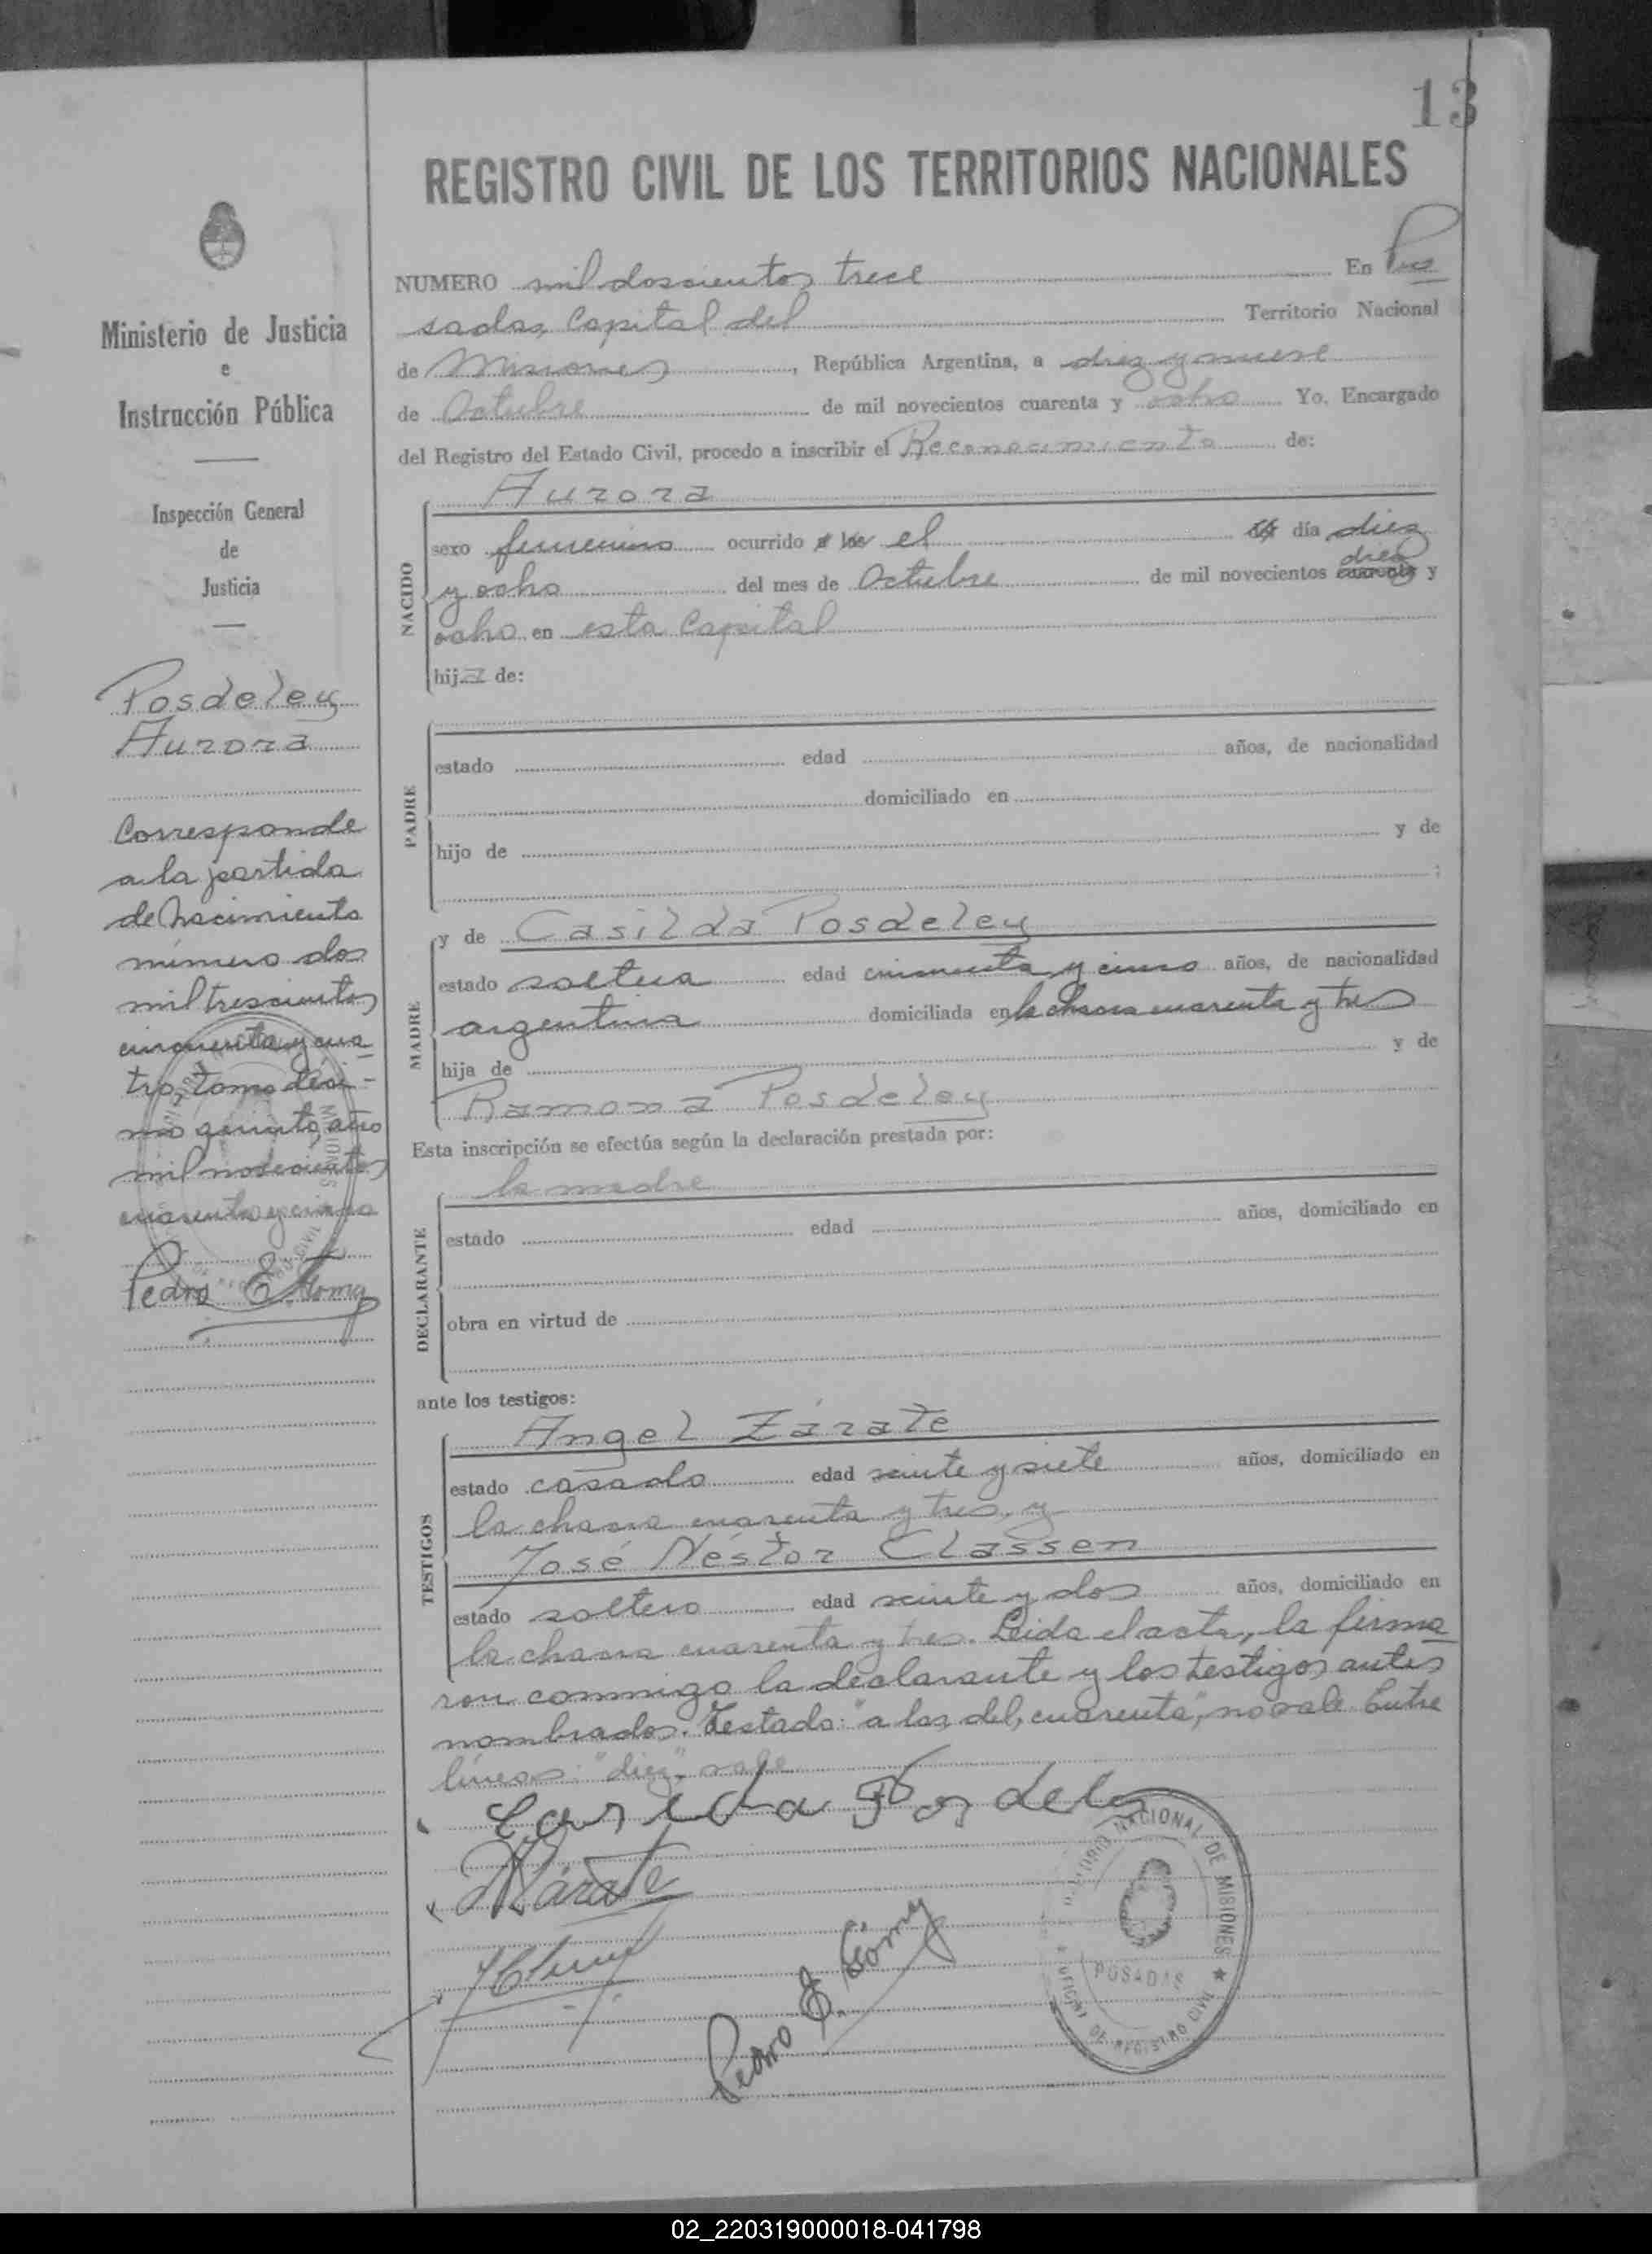 13
REGISTRO CIVIL DE LOS TERRITORIOS NACIONALES
NUMERO mil doscientos trece En Po
sadas, Capital del Territorio Nacional
de Misiones, República Argentina, a diez y nueve
de Octubre de mil novecientos cuarenta y ocho Yo, Encargado
del Registro del Estado Civil, procedo a inscribir el Reconocimiento de:
Aurora
NACIDO
sexo femenino ocurrido a las el del día diez
y ocho del mes de Octubre de mil novecientos cuarenta diez y
ocho en esta Capital
hija de:
PADRE
estado edad años, de nacionalidad
domiciliado en
hijo de y de
;
MADRE
y de Casilda Posdeley
estado soltera edad cincuenta y cinco años, de nacionalidad
argentina domiciliada en la chacra cuarenta y tres
hija de y de
Ramona Posdeley
Esta inscripción se efectúa según la declaración prestada por:
la madre
DECLARANTE
estado edad años, domiciliado en
obra en virtud de
ante los testigos:
TESTIGOS
Angel Zárate
estado casado edad veinte y siete años, domiciliado en
la chacra cuarenta y tres, y
José Néstor Classen
estado soltero edad veinte y dos años, domiciliado en
la chacra cuarenta y tres. Leida el acta, la firma
ron conmigo la declarante y los testigos antes
nombrados. Testado: "a las del, cuarenta", no vale. Entre
líneas: "diez", vale
Casilda Posdeley
Zárate
Pedro E. Gomy
TERRITORIO NACIONAL DE MISIONES ★
POSADAS
OFICINA DE REGISTRO CIVIL
Ministerio de Justicia
e
Instrucción Pública
Inspección General
de
Justicia
Posdeley
Aurora
Corresponde
a la partida
de nacimiento
número dos
mil trescientos
cincuenta y cua
tro, tomo déci-
mo quinto, año
mil novecientos
cuarenta y cinco
Pedro E. Gomy
02_220319000018-041798